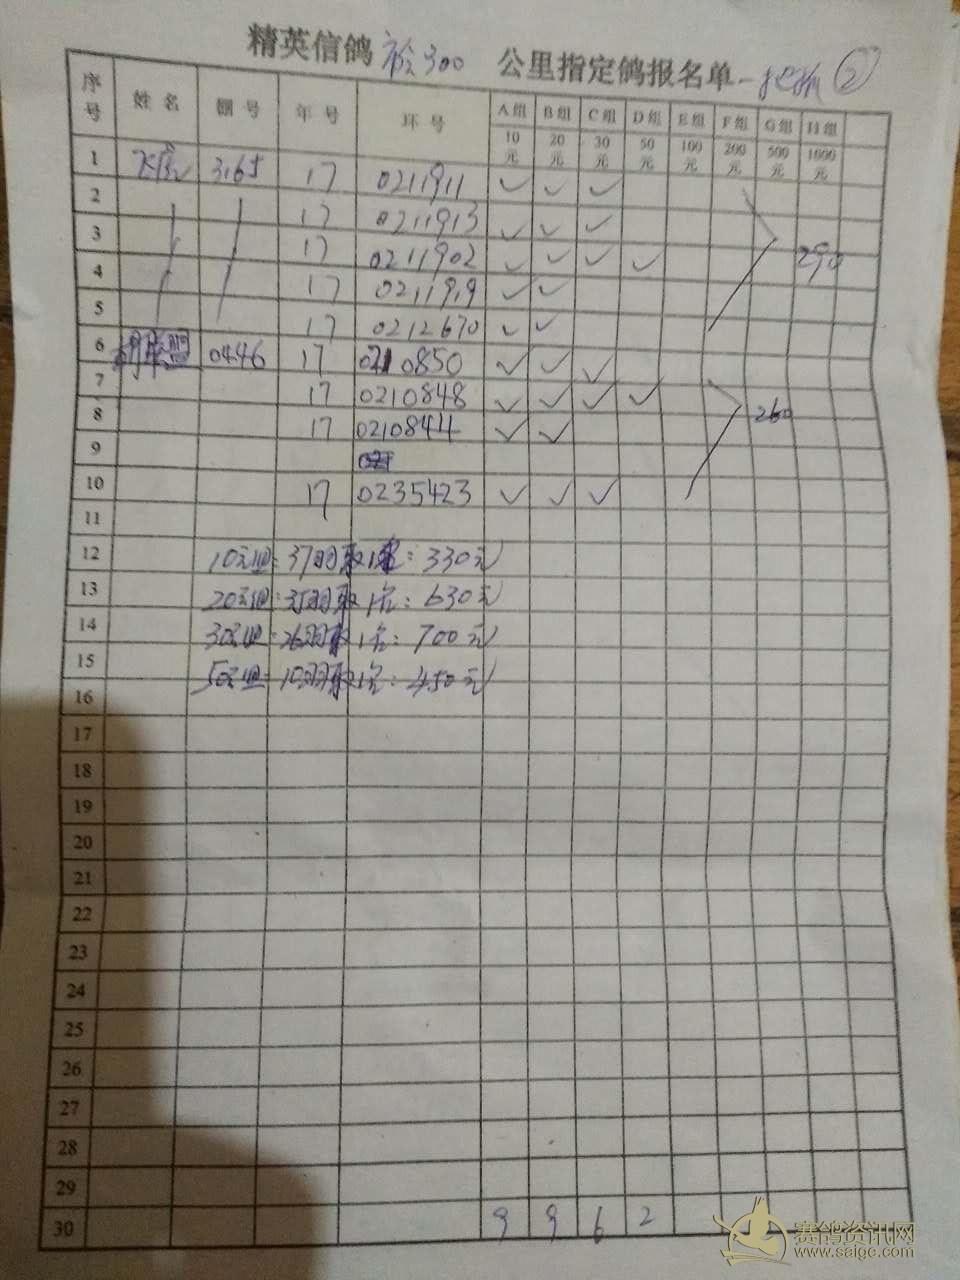 精英信鸽 市会300 公里指定鸽报名单 一把抓 ②
序号 姓名 棚号 年号 环号 A组 B组 C组 D组 E组 F组 G组 H组
10元 20元 30元 50元 100元 200元 500元 1000元
1 3165 17 0211911 ✓ ✓ ✓
2 17 0211913 ✓ ✓ ✓
3 17 0211902 ✓ ✓ ✓ ✓ 290
4 17 0211919 ✓ ✓
5 17 0212670 ✓ ✓
6 0446 17 0210850 ✓ ✓ ✓
7 17 0210848 ✓ ✓ ✓ ✓ 260
8 17 0210844 ✓ ✓
9
10 17 0235423 ✓ ✓ ✓
11
12 10元组:37羽取1名:330元
13 20元组:35羽取1名:630元
14 30元组:26羽取1名:700元
15 50元组:10羽取1名:450元
16
17
18
19
20
21
22
23
24
25
26
27
28
29
30 9 9 6 2
赛鸽资讯网
www.saigc.com